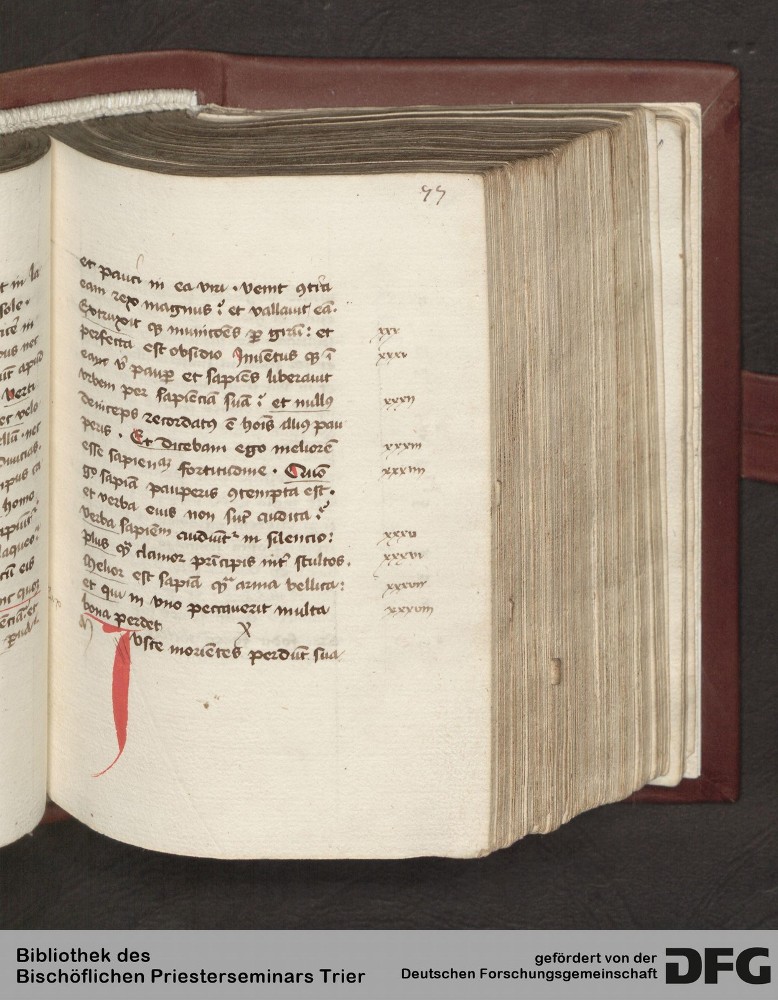 77
et pauci in ea viri · venit ꝯtra
eam rex magnus : et vallavit eā·
Extruxit qꝫ municōēs ꝑ girū : et
perfecta est obsidio Inuentus qꝫ ī
eam vͦ pauꝑ et sapiēs liberauit
vrbem per sapiēciā suā : et nullꝯ
deniceps recordatꝯ ē hoīs illiꝯ pau
peris · Et dicebam ego meliorē
esse sapienciā fortitudine · Quō
go sapiā pauperis ꝯtempta est·
et verba eius non sūt audita :
verba sapiēm audiūt in silencio :
plus qꝫ clamor prīcipis īnt stultos·
Melior est sapiā qꝫ arma bellica :
et qui in vno peccauerit multa
bona perdet
X
Uste moriētes perdūt sua
xxx
xxxi
xxxii
xxxiii
xxxiiii
xxxv
xxxvi
xxxvii
xxxviii
Bibliothek des
Bischöflichen Priesterseminars Trier
gefördert von der
Deutschen Forschungsgemeinschaft
DFG